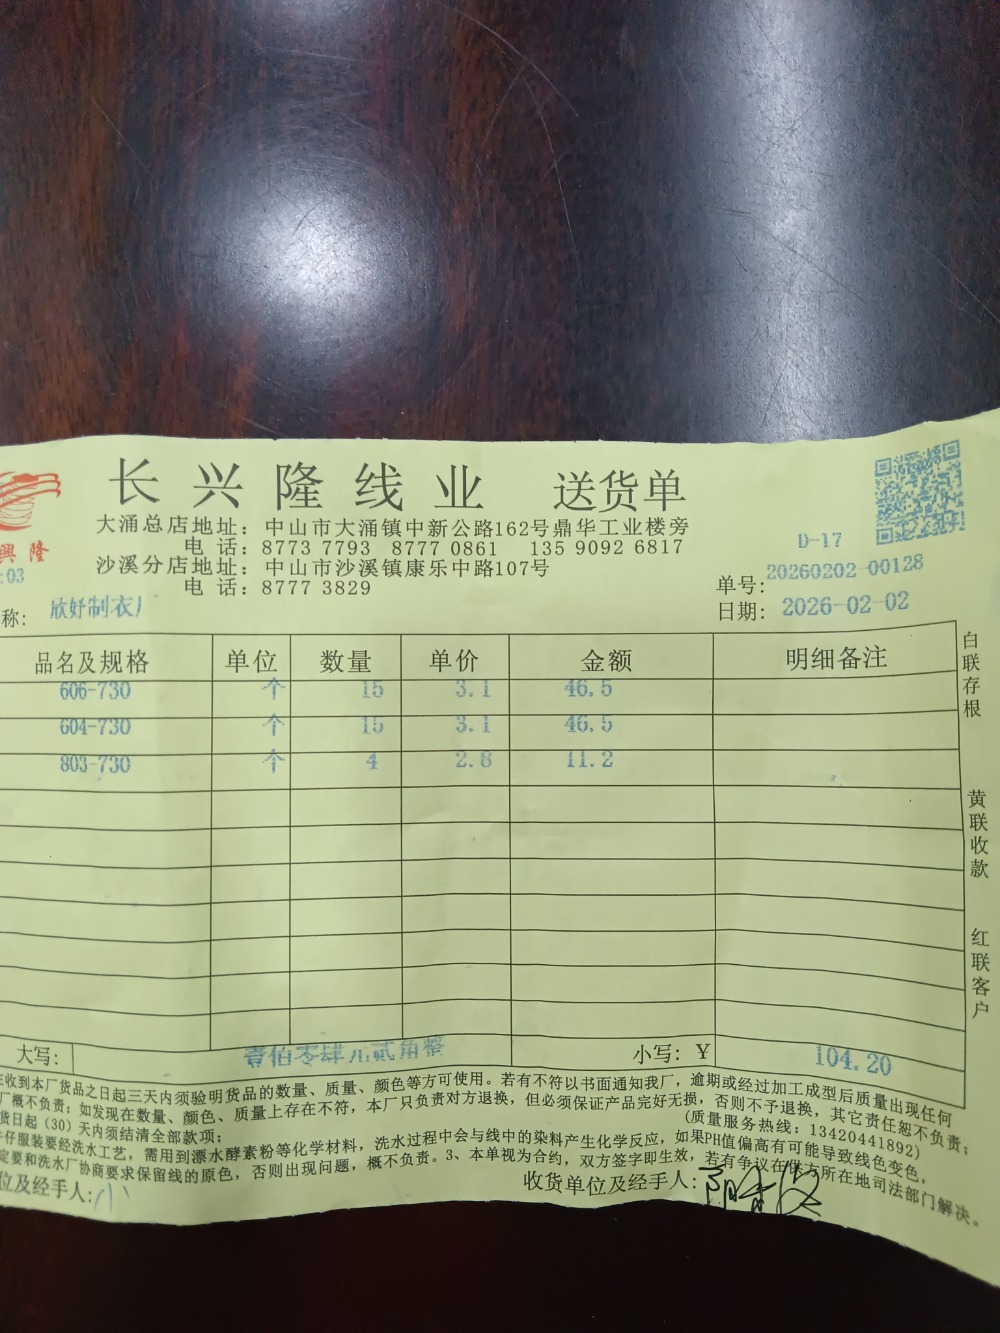 长兴隆线业 送货单
大涌总店地址：中山市大涌镇中新公路162号鼎华工业楼旁
电 话：8773 7793 8777 0861 135 9092 6817
沙溪分店地址：中山市沙溪镇康乐中路107号
电 话：8777 3829
興隆
:03
D-17
单号：20260202-00128
称：欣妤制衣厂
日期：2026-02-02
品名及规格 单位 数量 单价 金额 明细备注
606-730 个 15 3.1 46.5
604-730 个 15 3.1 46.5
803-730 个 4 2.8 11.2
大写： 壹佰零肆元贰角整 小写：￥ 104.20
白联存根
黄联收款
红联客户
在收到本厂货品之日起三天内须验明货品的数量、质量、颜色等方可使用。若有不符以书面通知我厂，逾期或经过加工成型后质量出现任何
厂概不负责；如发现在数量、颜色、质量上存在不符，本厂只负责对方退换，但必须保证产品完好无损，否则不予退换，其它责任恕不负责；
货日起（30）天内须结清全部款项； (质量服务热线：13420441892)
仔服装要经洗水工艺，需用到漂水酵素粉等化学材料，洗水过程中会与线中的染料产生化学反应，如果PH值偏高有可能导致线色变色，
定要和洗水厂协商要求保留线的原色，否则出现问题，概不负责。3、本单视为合约，双方签字即生效，若有争议在供方所在地司法部门解决。
位及经手人:小 收货单位及经手人: